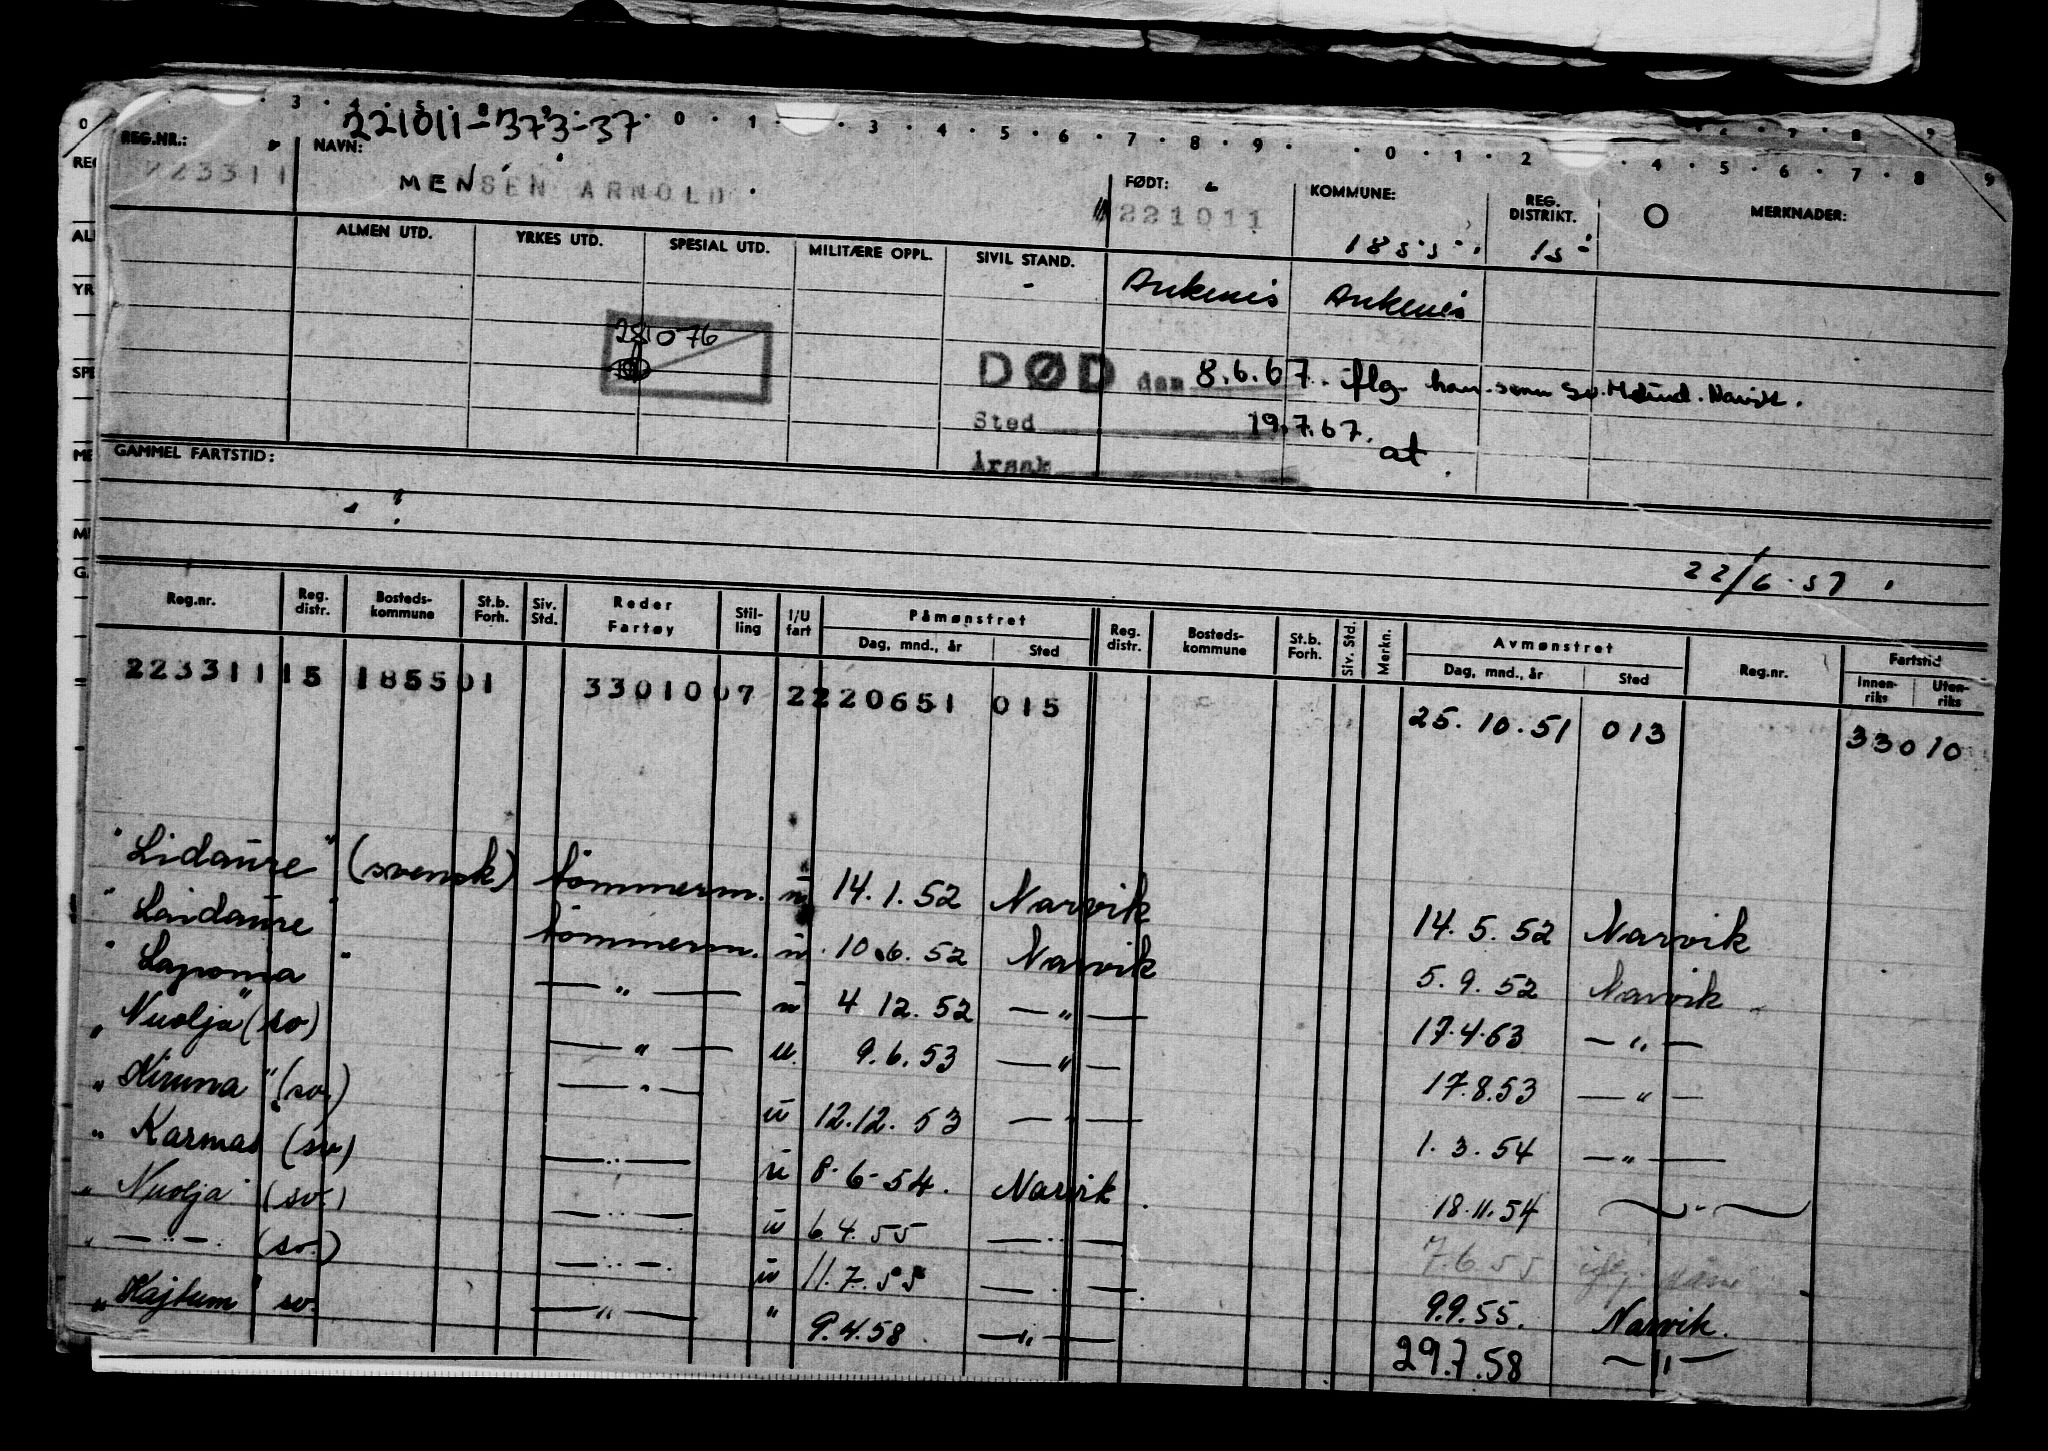 221011-373-37
REG.NR.: NAVN: FØDT: KOMMUNE: REG. DISTRIKT. MERKNADER:
223311 MENSEN ARNOLD 221011 1855 15
ALMEN UTD. YRKES UTD. SPESIAL UTD. MILITÆRE OPPL. SIVIL STAND.
Ankenes Ankenes
281076
DØD den 8.6.67. iflg. Narvik.
Sted 19.7.67.
Årsak at.
GAMMEL FARTSTID:
22/6.57
Reg.nr. Reg. distr. Bosteds-kommune St.b. Forh. Siv. Std. Reder Fartøy Stil-ling I/U fart Påmønstret Dag, mnd., år Sted Reg. distr. Bosteds-kommune St.b. Forh. Siv. Std. Merkn. Avmønstret Dag, mnd., år Sted Reg.nr. Fartstid Innen-riks Uten-riks
223311 15 1855 01 33010 07 2 220651 015 25.10.51 013 33010
"Lidaure" (svensk) tømmerm. u 14.1.52 Narvik 14.5.52 Narvik
"Laidaure" " tømmerm. u 10.6.52 Narvik 5.9.52 Narvik
"Laponia " — " — u 4 12.52 — " — 17.4.53 — " —
"Nuolja" (sv) — " — u. 9.6.53 — " — 17.8.53 — " —
"Kiruna" (sv.) — " — u 12.12.53 — " — 1.3.54 — " —
"Karmas (sv) — " — u 8.6-54. Narvik 18.11.54 — " —
"Nuolja" (sv.) — " — u 6.4.55 — " — 7.6.55
" — " — (sv.) — " — u 11.7.55 — " — 9.9.55. Narvik.
"Kajtum" sv. — " — " 9.4.58 — " — 29.7.58 — " —